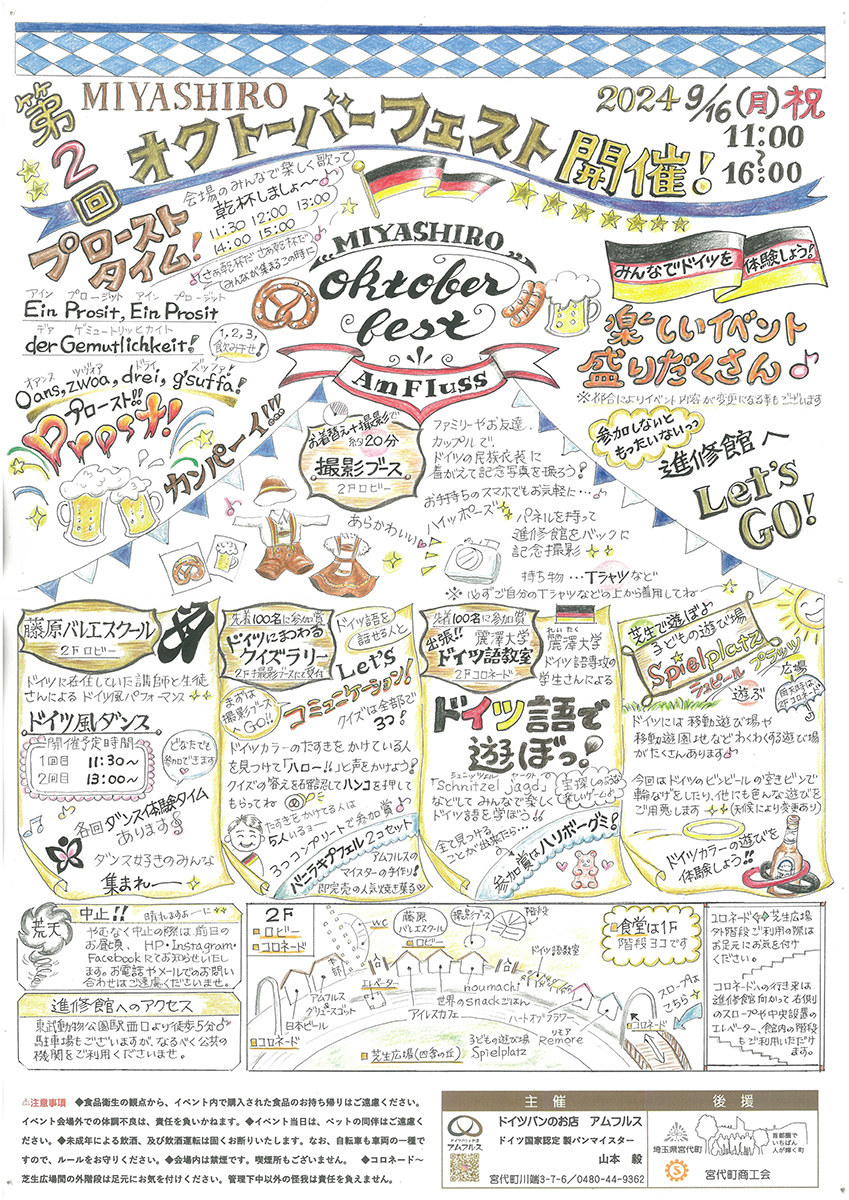 第2回
MIYASHIRO
オクトーバーフェスト
開催!
2024 9/16(月)祝
11:00
~
16:00
プロースト
タイム!
会場のみんなで楽しく歌って
乾杯しましょ~♪
11:30 12:00 13:00
14:00 15:00
♪さぁ乾杯だ さぁ乾杯だ
みんなが集まるこの時に♪
アイン プロージット アイン プロージット
Ein Prosit, Ein Prosit
デア ゲミュートリッヒカイト
der Gemutlichkeit!
1,2,3,
飲み干せ!
オアンス ツヴォア ドライ ズッファ!
Oans, zwoa, drei, g'suffa!
プロースト!!
Prost!
カンパーイ!!!
MIYASHIRO
oktober
fest
Am Fluss
みんなでドイツを体験しよう!
楽しいイベント
盛りだくさん♪
※都合によりイベント内容が変更になる事もございます
参加しないと
もったいないっっ
進修館へ
Let's
GO!
お着替え+撮影で
約20分
撮影ブース
2Fロビー
ファミリーやお友達、
カップルで、
ドイツの民族衣装に
着がえて記念写真を撮ろう!
お手持ちのスマホでもお気軽に…♪
ハイッポーズ
パネルを持って
進修館をバックに
記念撮影
あらかわいい♥
持ち物…Tシャツなど
※必ずご自分のTシャツなどの上から着用してね
藤原バレエスクール
2Fロビー
ドイツに在住していた講師と生徒
さんによるドイツ風パフォーマンス
ドイツ風ダンス
開催予定時間
1回目 11:30~
2回目 13:00~
どなたでも
参加できます
各回ダンス体験タイム
あります♪
ダンス好きのみんな
集まれ――
先着100名に参加賞
ドイツにまつわる
クイズラリー
2F撮影ブースにて受付
ドイツ語を
話せる人と
Let's
コミュニケーション!
まずは
撮影ブース
へGO!!
クイズは全部で
3つ!
ドイツカラーのたすきをかけている人
を見つけて「ハロー!!」と声をかけよう!
クイズの答えを確認してハンコを押して
もらってね
たすきをかけてる人は
5人いるよー
3つコンプリートで参加賞♪
バニラキプフェル2コセット
アムフルスの
マイスターの手作り!
即完売の人気焼き菓子♡
先着100名に参加賞
出張!! 麗澤大学
ドイツ語教室
2Fコロネード
れいたく
麗澤大学
ドイツ語専攻の
学生さんによる
ドイツ語で
遊ぼっ!
シュニッツェル ヤークト
「Schnitzel jagd」
などしてみんなで楽しく
ドイツ語を学ぼう!!
宝探しのような
楽しいゲームよ♪
全て見つける
ことが出来たら…
参加賞はハリボーグミ!
芝生で遊ぼよ♪
子どもの遊び場
Spielplatz
シュピール プラッツ
遊ぶ 広場
雨天時は
2Fコロネード
ドイツには移動遊び場や
移動遊園地などわくわくする遊び場
がたくさんあります♪
今回はドイツのビンビールの空きビンで
輪なげをしたり、他にも色んな遊びを
ご用意します(天候により変更あり)
ドイツカラーの遊びを
体験しよう!!
荒天
中止!! 晴れますよーに
やむなく中止の際は前日の
お昼頃、HP・Instagram・
Facebookにてお知らせいたし
ます。お電話やメールでのお問い
合わせはご遠慮くださいませ。
進修館へのアクセス
東武動物公園駅西口より徒歩5分♪
駐車場もございますが、なるべく公共の
機関をご利用くださいませ。
2F
ロビー
コロネード
WC
藤原
バレエスクール
ロビー
撮影ブース
階段
ドイツ語教室
食堂は1F
階段ヨコです
エレベーター
アムフルス
グリュースゴット
日本ビール
アイレスカフェ
noumachi
世界のsnackごはん
ハートオブフラワー
リモア
Remore
コロネード
スロープは
こちら
コロネード
芝生広場(四季の丘)
子どもの遊び場
Spielplatz
コロネード⇔芝生広場
外階段ご利用の際は
お足元にお気を付け
ください。
コロネードへの行き来は、
進修館向かって右側
のスロープや中央設置の
エレベーター、館内の階段
もご利用いただけ
ます。
⚠注意事項 ◆食品衛生の観点から、イベント内で購入された食品のお持ち帰りはご遠慮ください。
イベント会場外での体調不良は、責任を負いかねます。◆イベント当日は、ペットの同伴はご遠慮く
ださい。◆未成年による飲酒、及び飲酒運転は固くお断りいたします。なお、自転車も車両の一種で
すので、ルールをお守りください。◆会場内は禁煙です。喫煙所もございません。 ◆コロネード~
芝生広場間の外階段は足元にお気を付けください。管理下中以外の怪我は責任を負えません。
主催
ドイツパンの店
アムフルス
ドイツパンのお店 アムフルス
ドイツ国家認定 製パンマイスター
山本 毅
宮代町川端3-7-6/0480-44-9362
後援
埼玉県宮代町
首都圏で
いちばん
人が輝く町
宮代町商工会